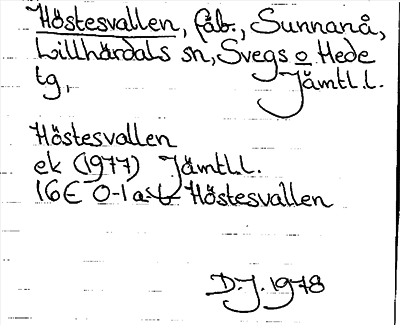 Höstesvallen, fäb., Sunnanå,
Lillhärdals sn, Svegs o Hede
tg, Jämtl.l.
Höstesvallen
ek (1977) Jämtl.l.
16E 0-1 a-b Höstesvallen
D.J. 1978